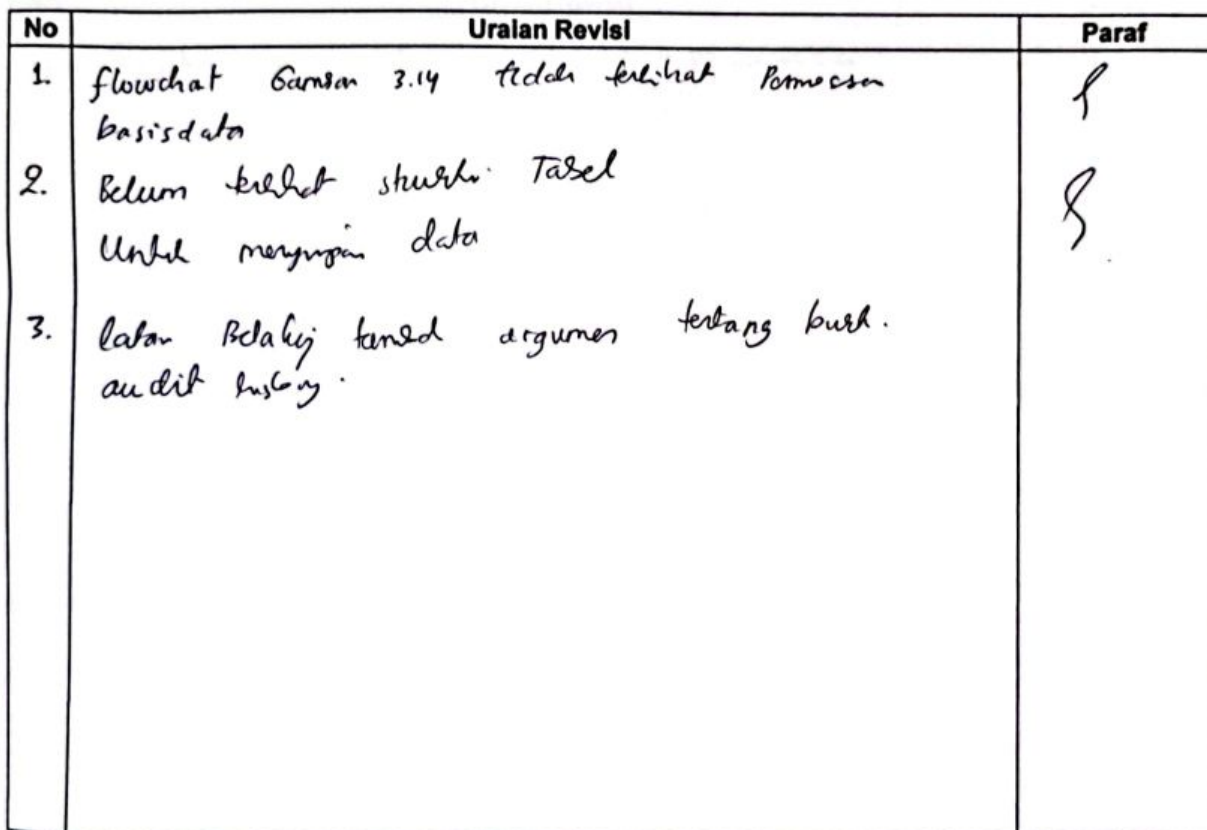 No Uraian Revisi Paraf
1. flowchat Gambar 3.14 tidak terlihat
basisdata
2. Belum terlihat struktur Tabel
Untuk menyimpan data
3. latar Belakang argumen tentang
audit history.